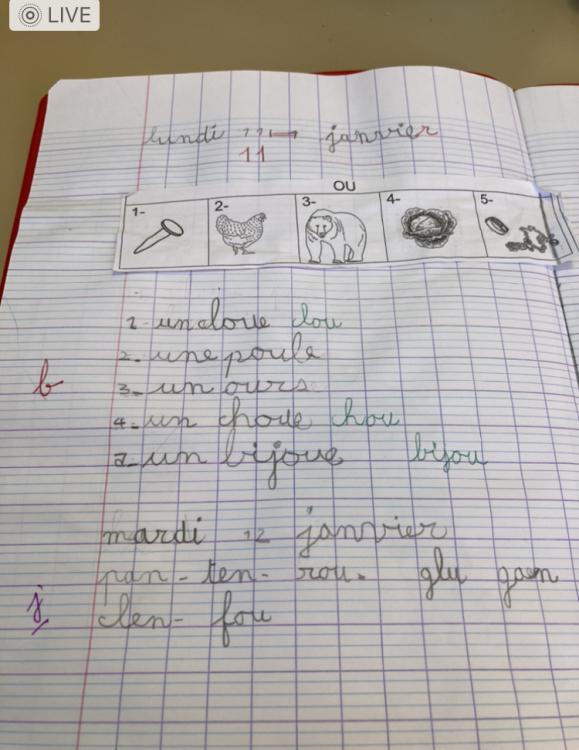 LIVE
lundi 11 janvier
11
OU
1- 2- 3- 4- 5-
1- un cloue clou
2- une poule
b 3- un ours
4- un choue hou
un bijoue bijou
mardi 12 janvier
pan - ten - rou. glu gam
j clen - fou